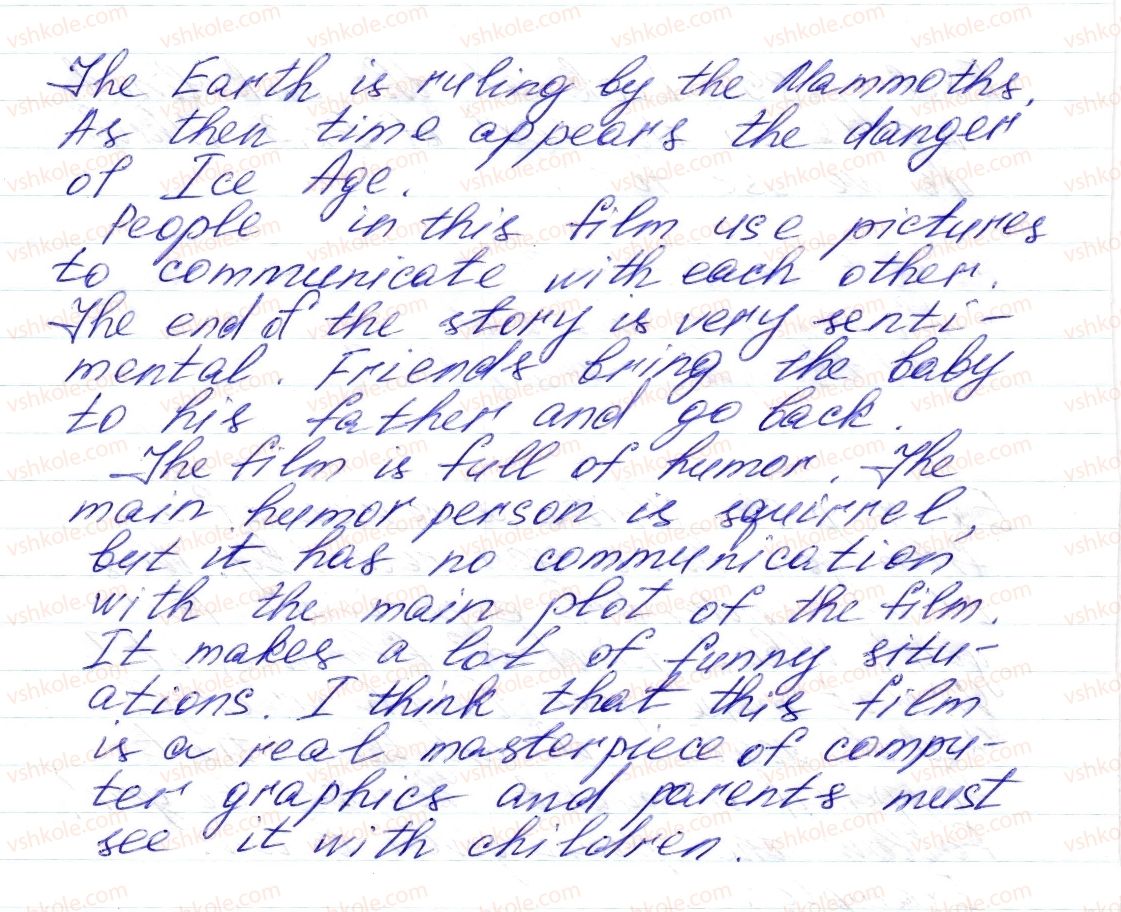 The Earth is ruling by the Mammoths.
As then time appears the danger
of Ice Age.
People in this film use pictures
to communicate with each other.
The end of the story is very senti-
mental. Friends bring the baby
to his father and go back.
The film is full of humor. The
main humor person is squirrel,
but it has no communication
with the main plot of the film.
It makes a lot of funny situ-
ations. I think that this film
is a real masterpiece of compu-
ter graphics and parents must
see it with children.
vshkole.com